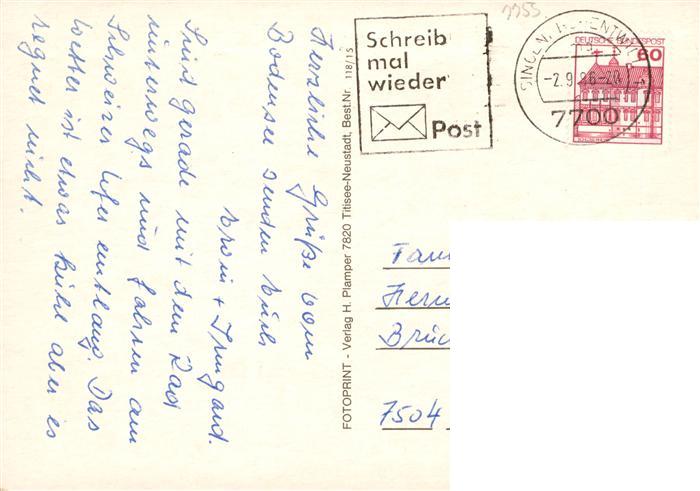 Herzliche Grüße vom
Bodensee senden Euch
Irmgard.
Sind gerade mit dem Rad
unterwegs und fahren am
Schweizer Ufer entlang. Das
Wetter ist etwas kühl aber es
regnet nicht.
FOTOPRINT - Verlag H. Plamper 7820 Titisee-Neustadt, Best.Nr 118/15
Schreib
mal
wieder
Post
7755
SINGEN, HOHENTWIEL
-2.9.86-20
7700
DEUTSCHE BUNDESPOST
60
Fam
Herm
Brüc
7504